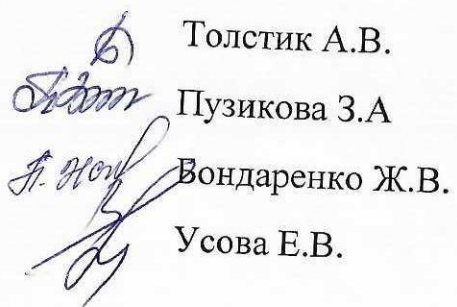 Толстик А.В.
Пузикова З.А
Бондаренко Ж.В.
Усова Е.В.